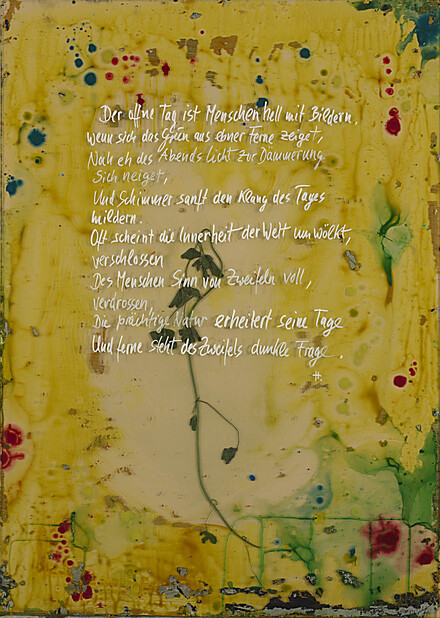 Der offne Tag ist Menschen hell mit Bildern.
Wenn sich das Grün aus ebner Ferne zeiget,
Noch eh des Abends Licht zur Dämmerung
Sich neiget,
Und Schimmer sanft den Klang des Tages
mildern.
Oft scheint die Innerheit der Welt umwölkt,
verschlossen
Des Menschen Sinn von Zweifeln voll,
verdrossen,
Die prächtige Natur erheitert seine Tage
Und ferne steht des Zweifels dunkle Frage.
H.